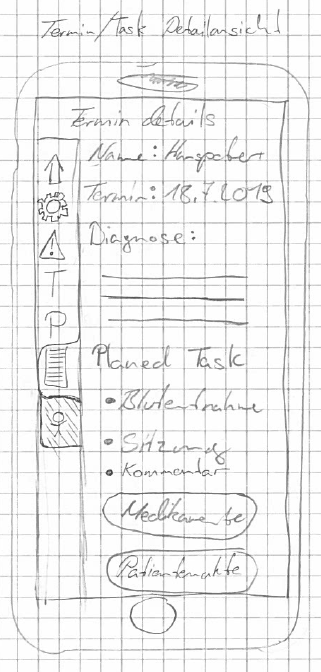 Termin/Task Detailansicht
Termin details
Name: Hanspeter
Termin: 18.7.2019
Diagnose:
T
P
Planed Task
• Blutentnahme
• Sitzung
• Kommentar
Medikamente
Patientenakte